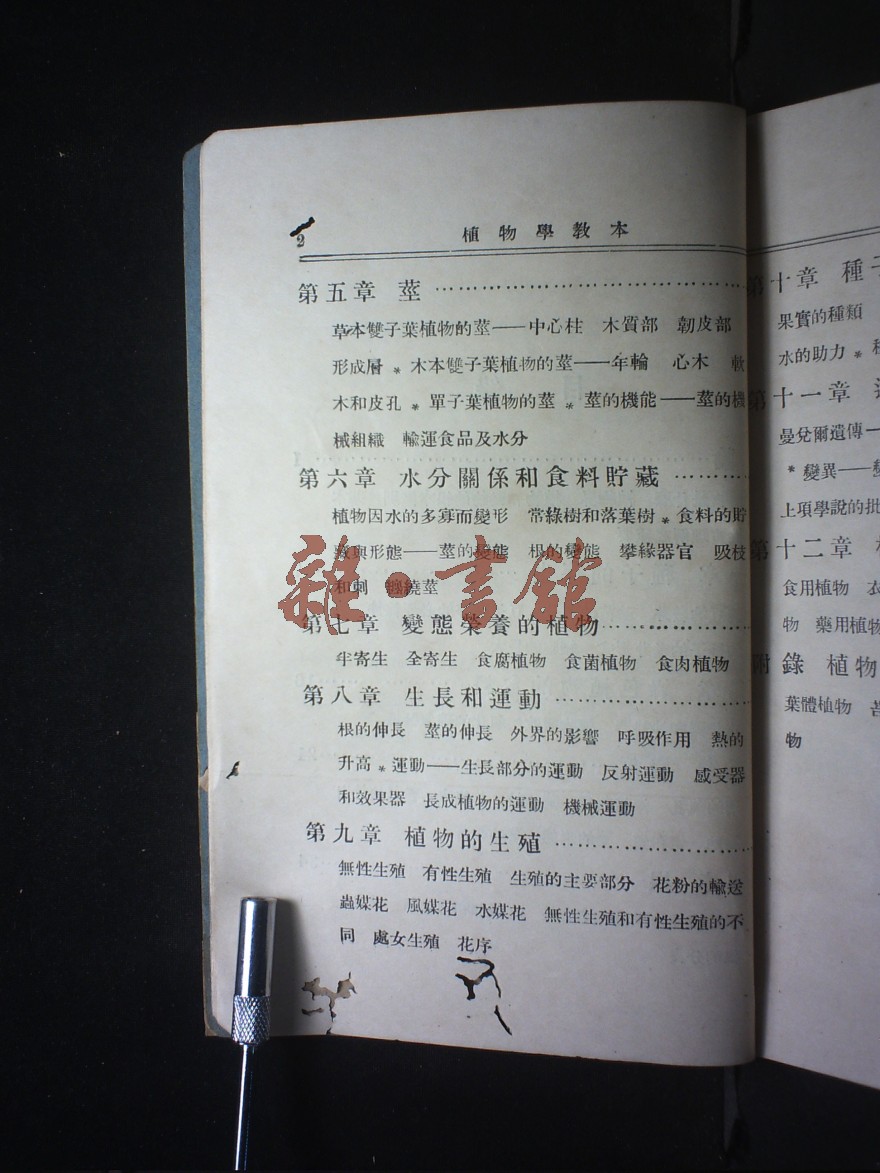 2
植物學教本
第五章 莖
草本雙子葉植物的莖——中心柱 木質部 韌皮部
形成層 * 木本雙子葉植物的莖——年輪 心木 軟
木和皮孔 * 單子葉植物的莖 * 莖的機能——莖的機
械組織 輸運食品及水分
第六章 水分關係和食料貯藏
植物因水的多寡而變形 常綠樹和落葉樹 * 食料的貯
藏與形態——莖的變態 根的變態 攀緣器官 吸枝
和刺 纏繞莖
第七章 變態榮養的植物
半寄生 全寄生 食腐植物 食菌植物 食肉植物
第八章 生長和運動
根的伸長 莖的伸長 外界的影響 呼吸作用 熱的
升高 * 運動——生長部分的運動 反射運動 感受器
和效果器 長成植物的運動 機械運動
第九章 植物的生殖
無性生殖 有性生殖 生殖的主要部分 花粉的輸送
蟲媒花 風媒花 水媒花 無性生殖和有性生殖的不
同 處女生殖 花序
第十章 種子
果實的種類
水的助力 *
第十一章
曼兌爾遺傳
* 變異——
上項學說的批
第十二章
食用植物
物 藥用植物
附錄 植物
葉體植物
物
雜·書館